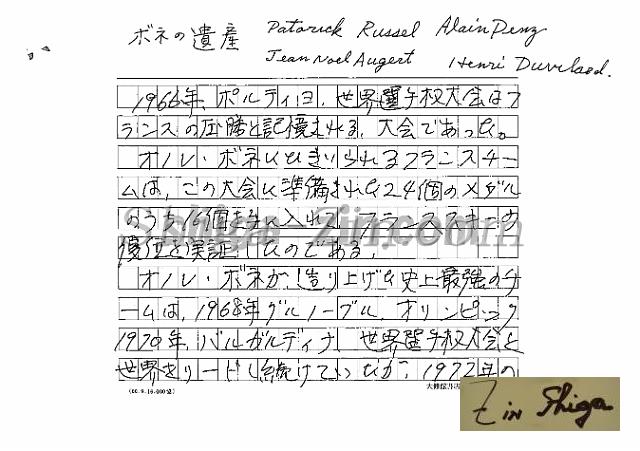 ボネの遺産
Patorick Russel Alain Penz
Jean Noel Augert Henri Duvilard.
1966年、ポルティヨ、世界選手権大会はフ
ランスの圧勝と記憶される、大会であった。
オノレ・ボネにひきいられるフランスチー
ムは、この大会に準備された24個のメダル
のうち16個を手に入れて、フランススキーの
優位を実証したのである。
オノレ・ボネが、造り上げた史上最強のチ
ームは、1968年グルノーブル、オリンピック
1970年、バルガルディナ、世界選手権大会と
世界をリードし続けていたが、1972年の
Shiga Zin.com
(00.9.10.000)
大修館
Z in Shiga